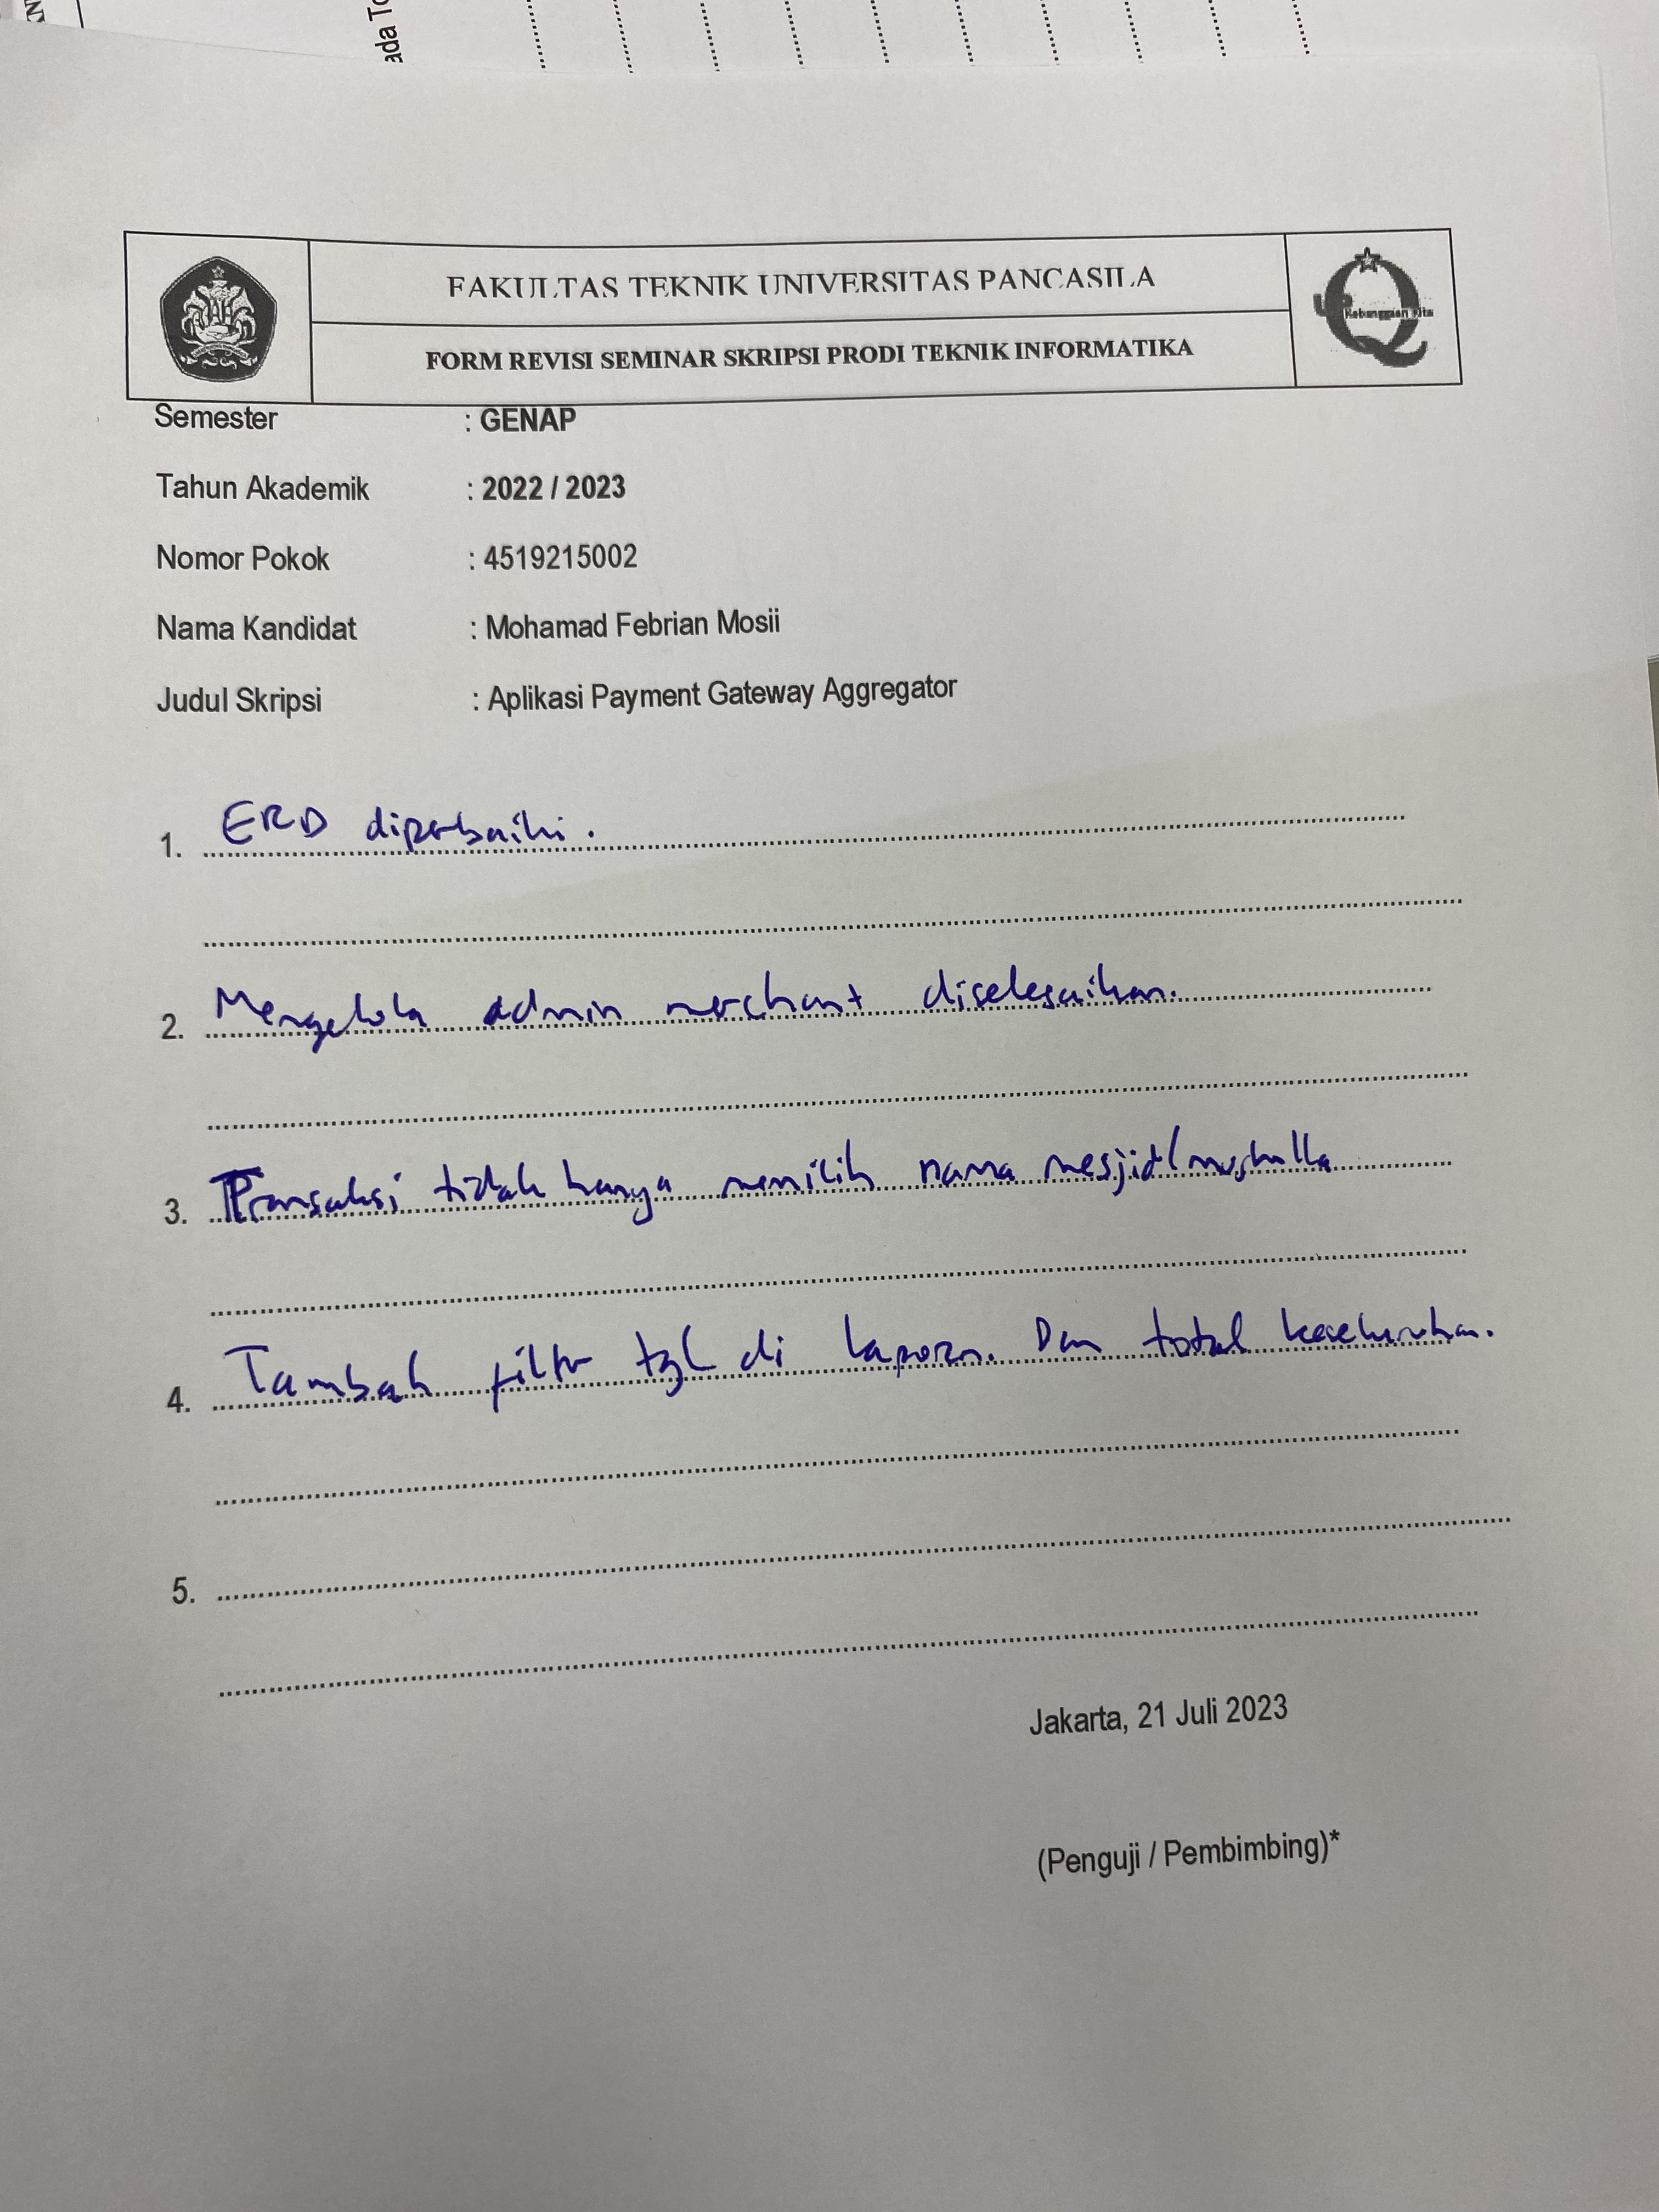 ada To
FAKULTAS TEKNIK UNIVERSITAS PANCASILA
FORM REVISI SEMINAR SKRIPSI PRODI TEKNIK INFORMATIKA
Kebanggaan Kita
Semester : GENAP
Tahun Akademik : 2022 / 2023
Nomor Pokok : 4519215002
Nama Kandidat : Mohamad Febrian Mosii
Judul Skripsi : Aplikasi Payment Gateway Aggregator
1. ERD diperbaiki.
2. Mengelola admin merchant diselesaikan.
3. Transaksi tidak hanya memilih nama mesjid/musholla
4. Tambah filter tgl di laporan. Dan total keseluruhan.
5.
Jakarta, 21 Juli 2023
(Penguji / Pembimbing)*